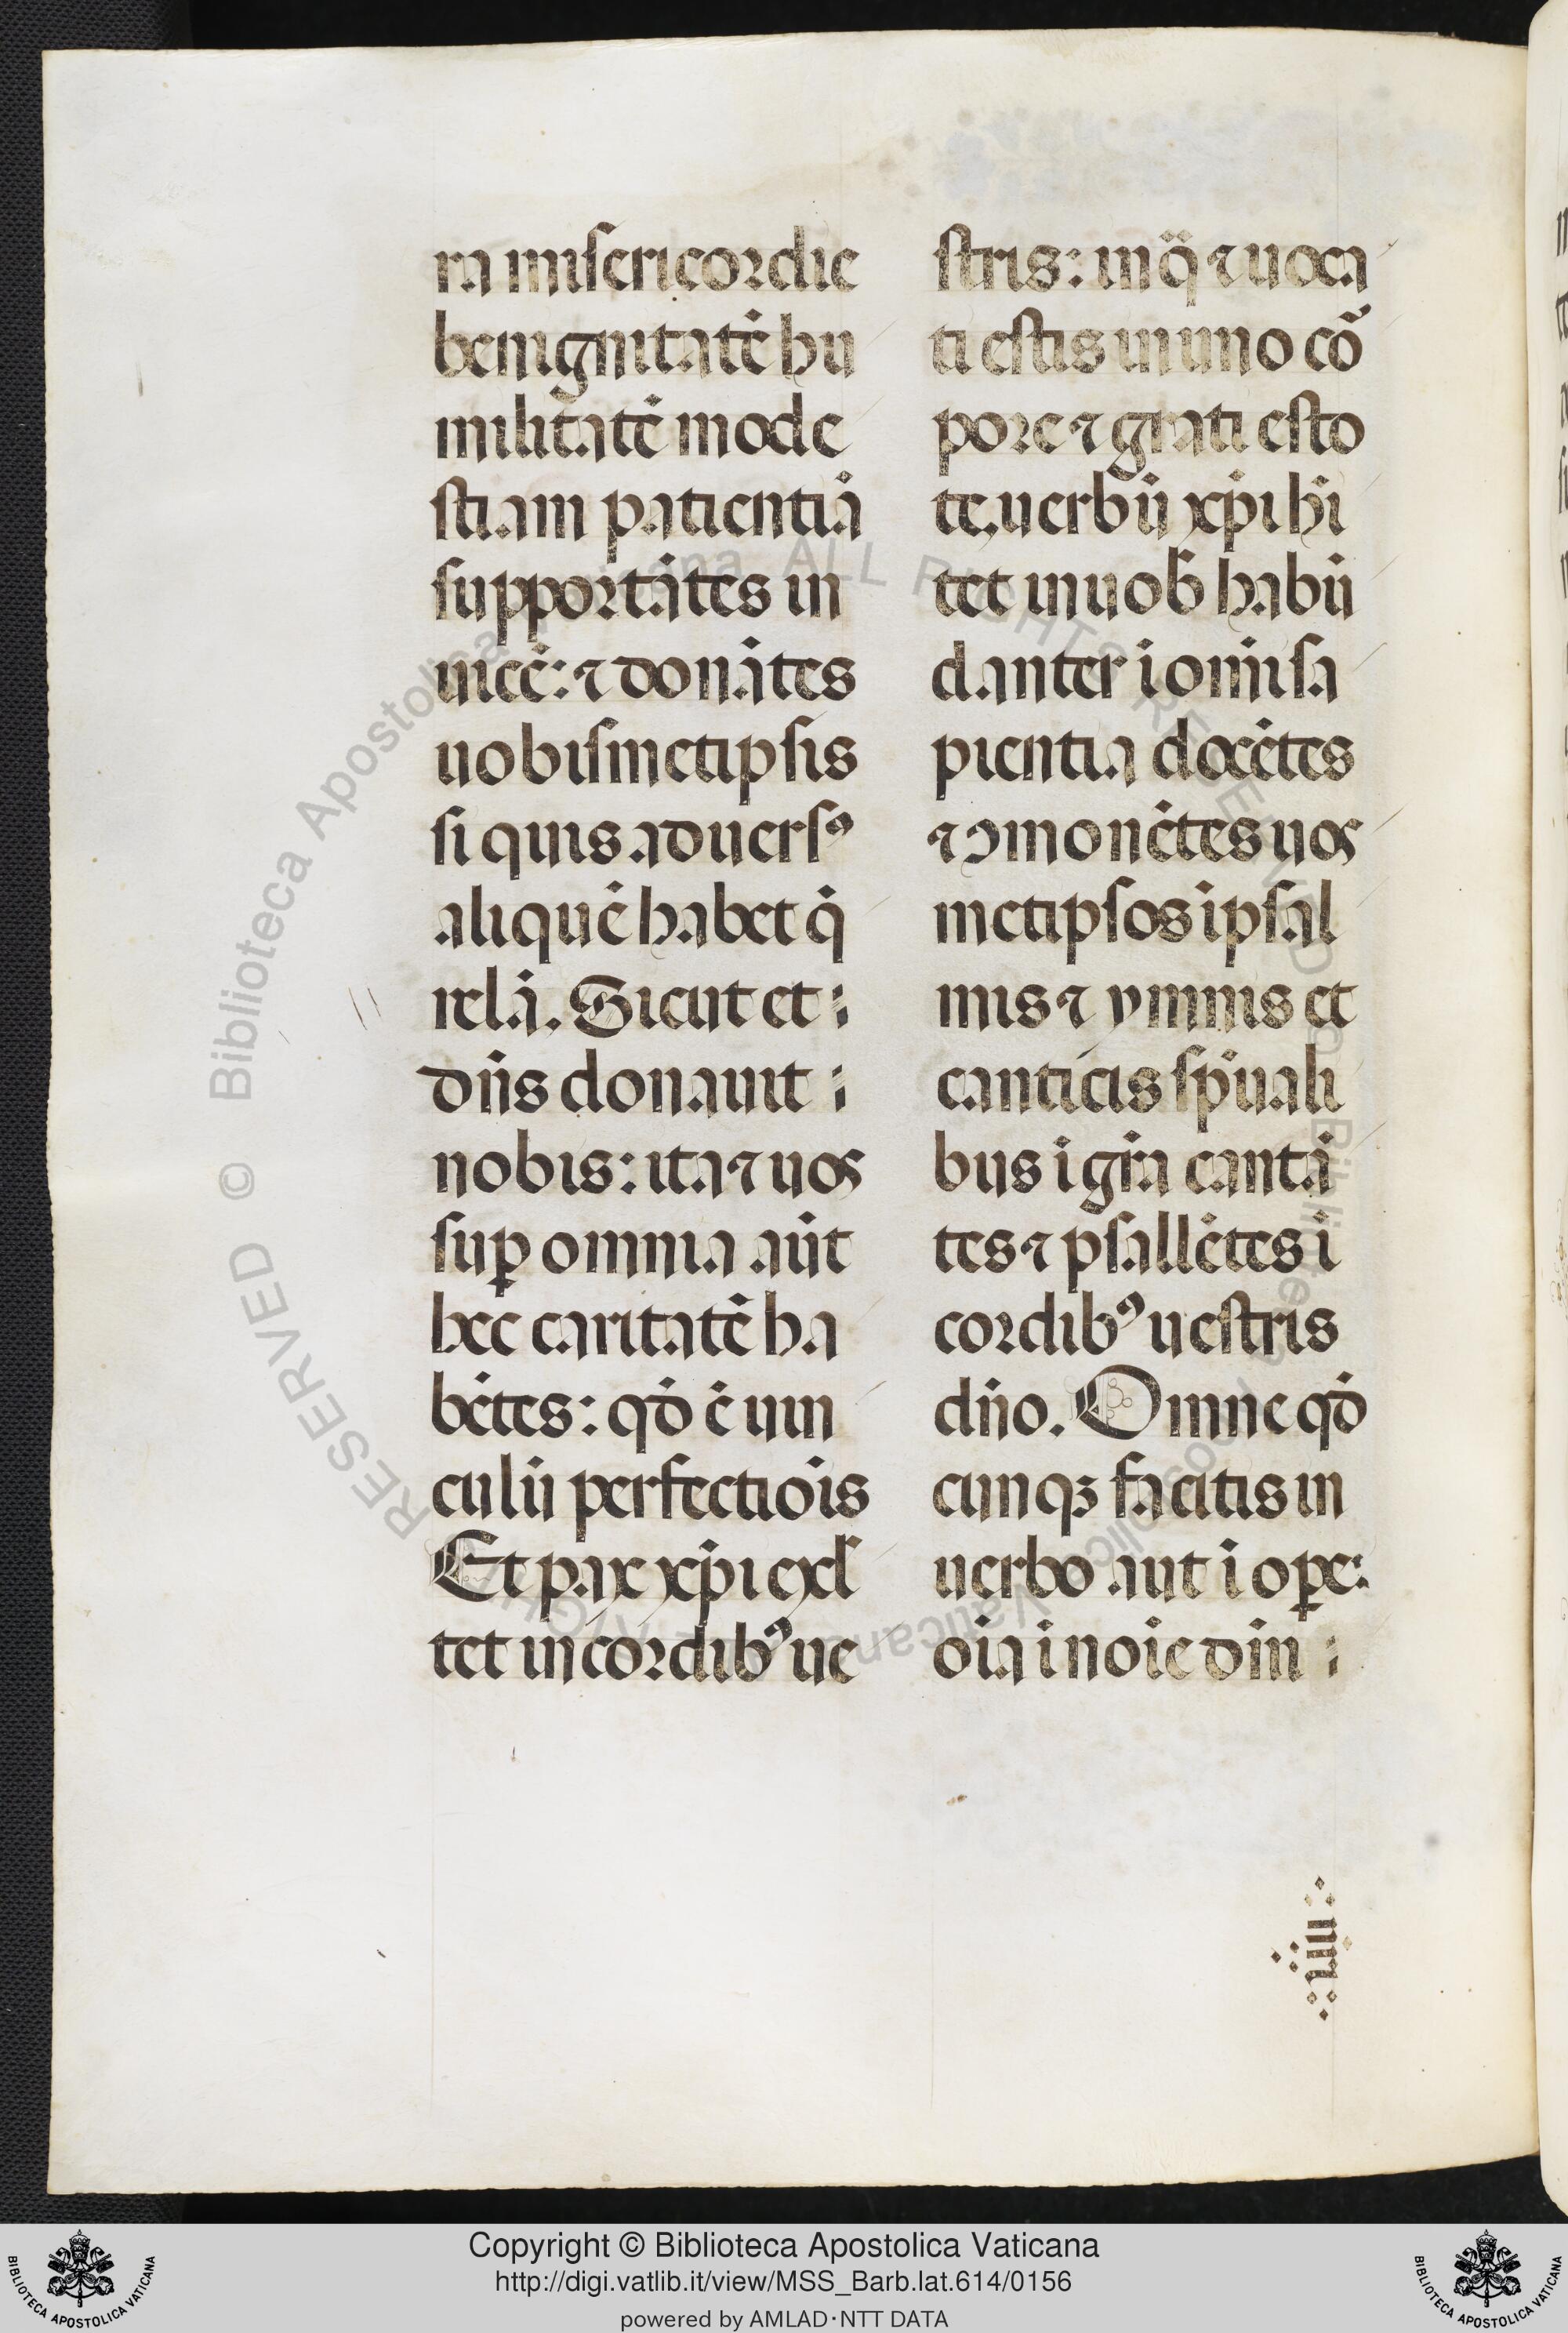 ra misericordie
benignitatē hu
militatē mode
stiam patientiā
supportātes in
uicē: ⁊ donātes
uobismetipsis
si quis aduersꝰ
aliquē habet q̄
relā. Sicut et
dn̄s donauit
nobis: ita ⁊ uos
suꝑ omnia aūt
hec caritatē ha
bētes: qd̄ ē uin
culū perfectiōis
Et pax xp̄i exl̄
tet in cordibꝰ ue
stris: in q̈ ⁊ uoca
ti estis in uno cō
pore ⁊ grati esto
te. uerbū xp̄i hī
tet in uob̄ habū
danter ī om̄i sa
pientia docētes
⁊ ꝯmonētes uos
metipsos ī psal
mis ⁊ ymnis et
canticis sp̄uali
bus ī gr̄a cantā
tes ⁊ psallētes ī
cordibꝰ uestris
dn̄o. Omne qd̄
cunqꝫ facitis in
uerbo aut ī oꝑe:
oīa ī noīe dn̄i
Copyright © Biblioteca Apostolica Vaticana
http://digi.vatlib.it/view/MSS_Barb.lat.614/0156
powered by AMLAD·NTT DATA
BIBLIOTECA APOSTOLICA VATICANA
BIBLIOTECA APOSTOLICA VATICANA